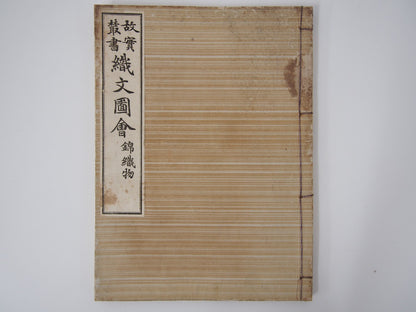 故實叢書
織文圖會
錦織物